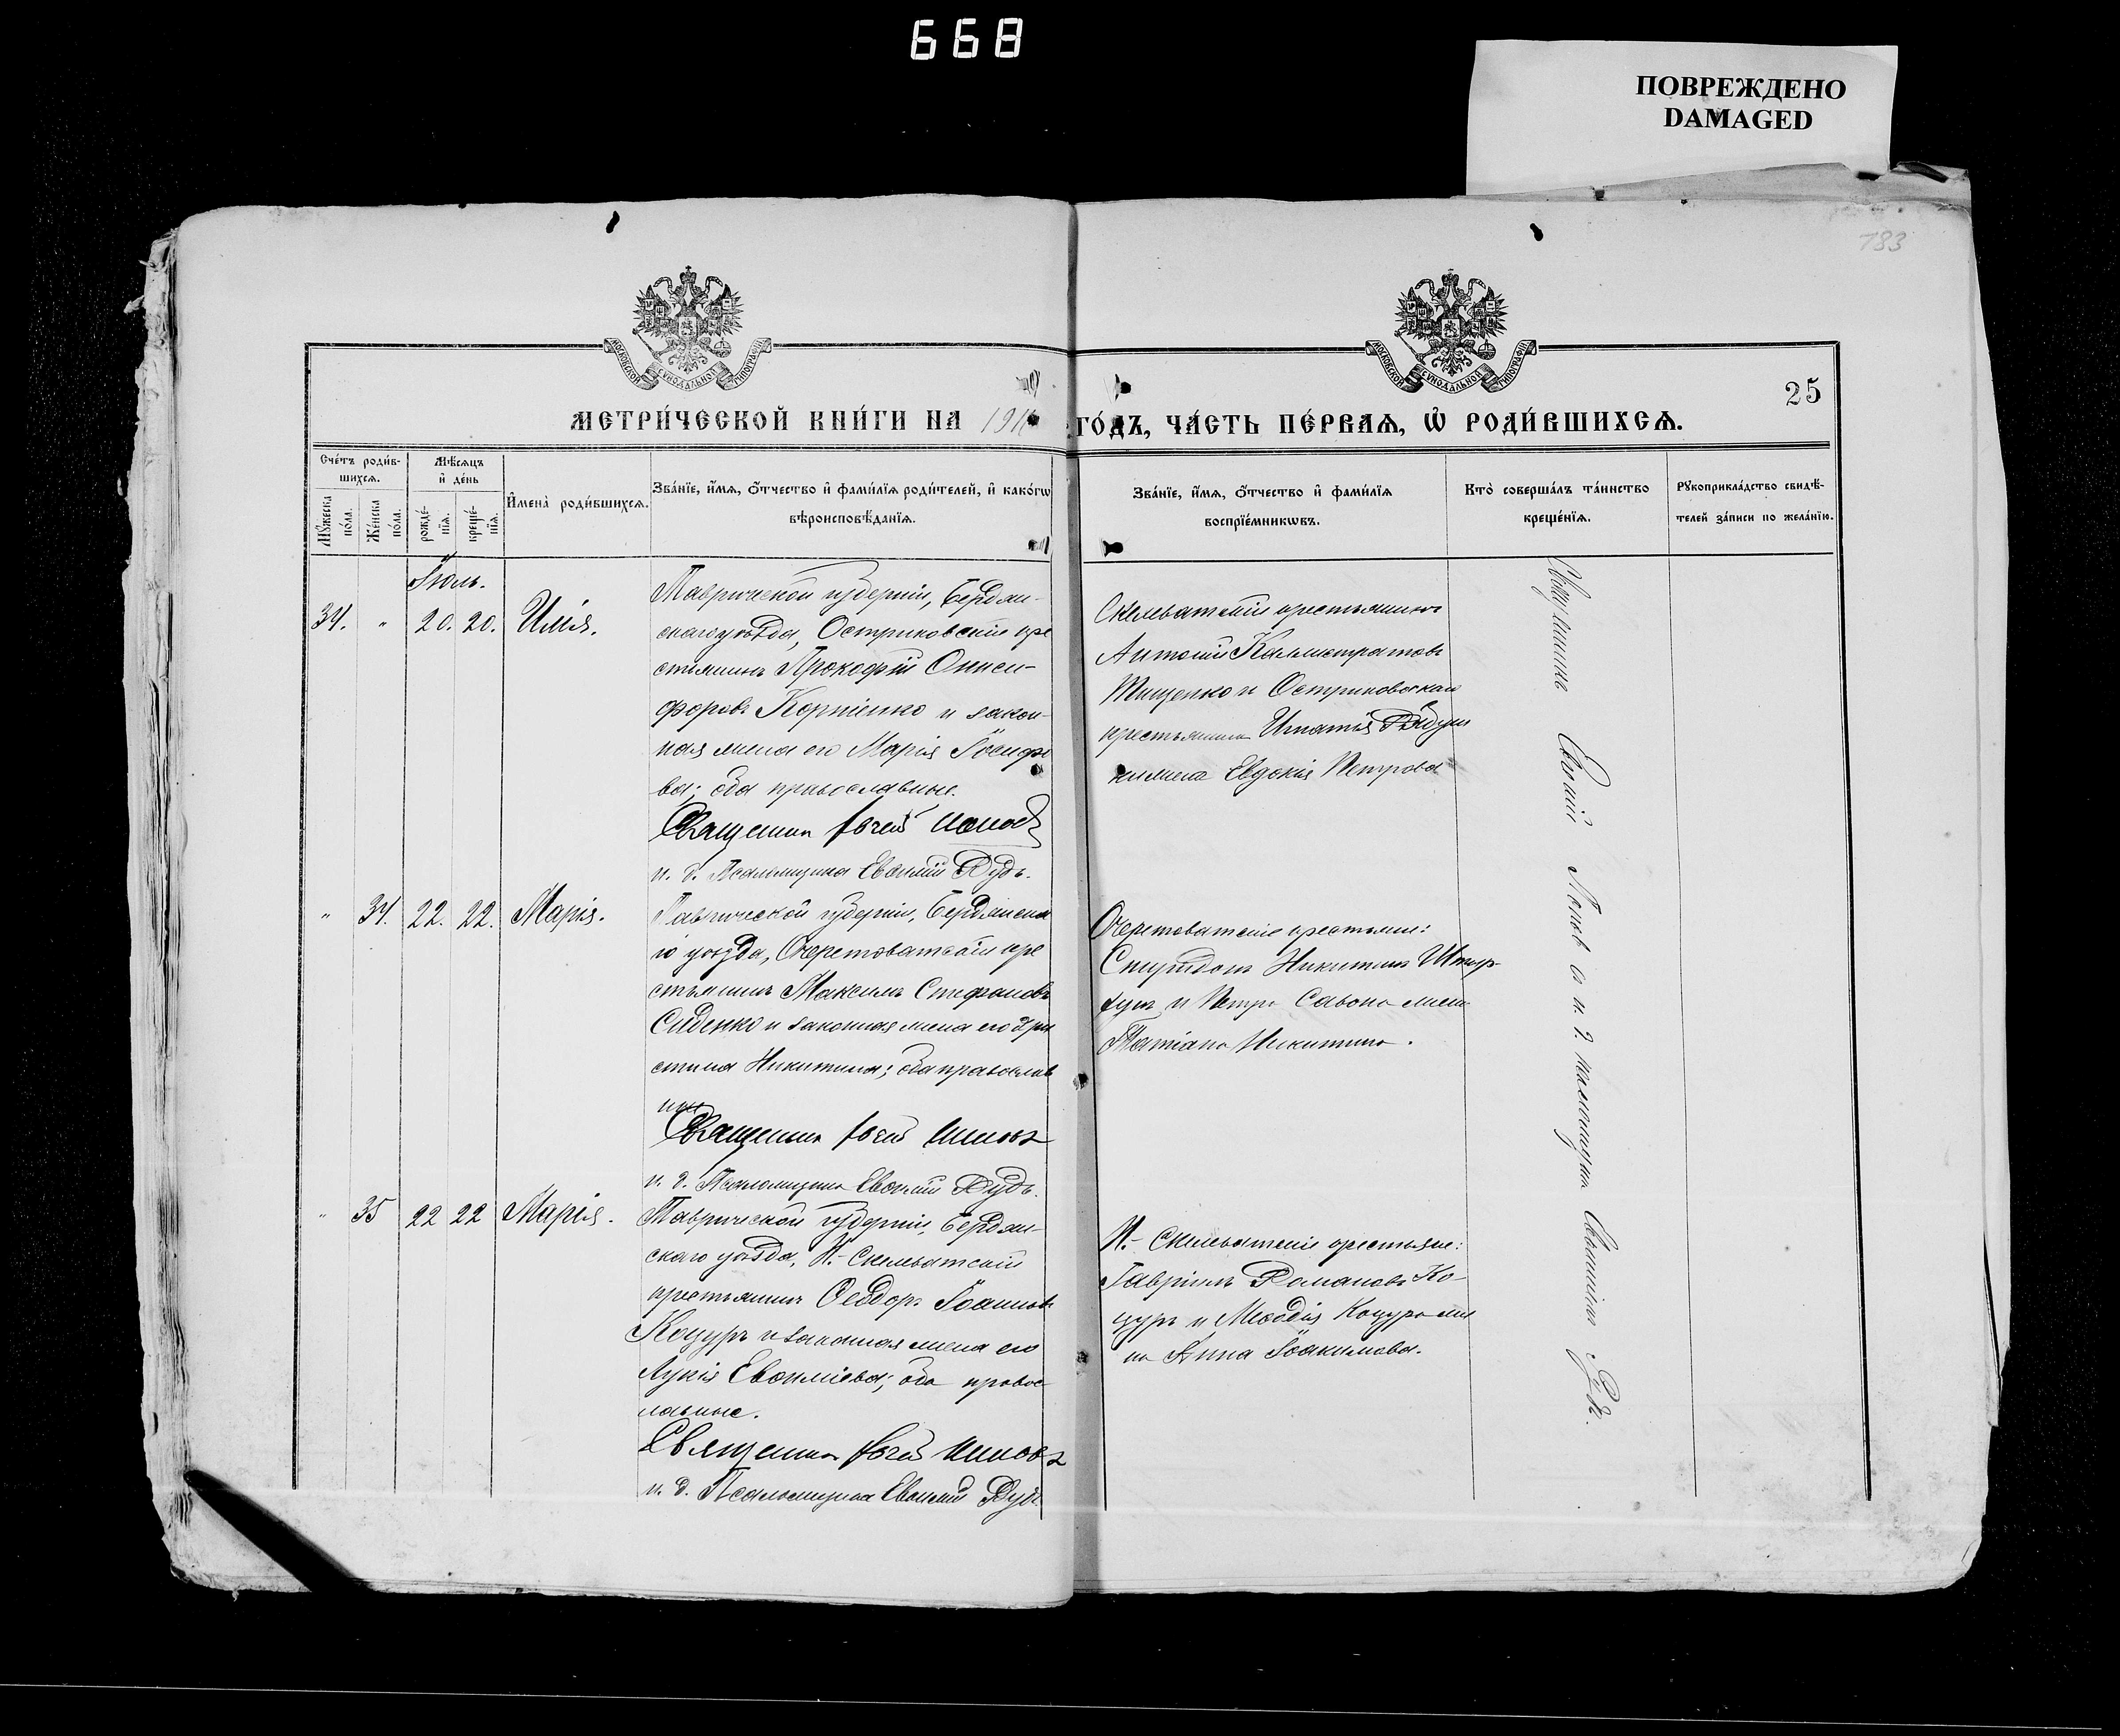 668
ПОВРЕЖДЕНО
DAMAGED
783
МОСКОВСКОЙ СѴНОДАЛЬНОЙ ТИПОГРАФІИ
МОСКОВСКОЙ СѴНОДАЛЬНОЙ ТИПОГРАФІИ
25
МЕТРИ́ЧЕСКОЙ КНИ́ГИ НА 191
ГО́ДЪ, ЧА́СТЬ ПЕ́РВАѦ, Ѡ҆ РОДИ́ВШИХСѦ.
Сче́тъ роди́в-
шихсѧ.
Мꙋ́жеска
по́ла.
Же́нска
по́ла.
Мѣ́сѧцъ
и҆ де́нь
рожде́-
нїѧ.
креще́-
нїѧ.
И҆мена̀ роди́вшихсѧ.
Зва́нїе, и҆́мѧ, ѻ҆́тчество и҆ фами́лїѧ роди́телей, и҆ како́гѡ
вѣроисповѣ́данїѧ.
Зва́нїе, и҆́мѧ, ѻ҆́тчество и҆ фами́лїѧ
воспрїе́мникѡвъ.
Кто̀ соверша́лъ та́инство
креще́нїѧ.
Рꙋкоприкла́дство свидѣ́-
телей за́писи по жела́нїю.
Іюль.
34. " 20. 20. Илія.
Таврической губерніи, Бердян-
скаго уѣзда, Остриковскій кре
стьянинъ Прокофій Ониси-
форовъ Корніенко и закон-
ная жена его Марія Іосифо
ва; оба православные.
Священникъ Попов
и. д. Псаломщика Евѳимій Рудь.
Скелеватскій крестьянинъ
Антоній Каллистратовъ
Тищенко и Остриковская
крестьянина Игнатія
жена Евдокія Петрова
" 34. 22. 22. Марія.
Таврической губерніи, Бердянска
го уѣзда, Очеретоватскій кре
стьянинъ Максимъ Стефановъ
Сиденко и законная жена его Хри
стина Никитина; оба православ
ные
Священникъ Поповъ
и. д. Псаломщика Евѳимій Рудь.
Очеретоватскіе крестьяне:
Спиридонъ Никитинъ
и Петра Савона жена
Татіана Никитина.
" 35 22 22 Марія.
Таврической губерніи, Бердян-
скаго уѣзда, Н.-Скелеватскій
крестьянинъ Ѳеодоръ Іоанновъ
Коцуръ и законная жена его
Лукія Евѳиміева; оба правос-
лавные.
Священникъ Поповъ
и. д. Псаломщика Евѳимій Рудь
Н.-Скелеватскіе крестьяне:
Гавріилъ Романовъ Ко-
цуръ и Меѳодія Коцура же
на Анна Іоакимова.
Священникъ Попов с и. д. псаломщика Евѳиміемъ